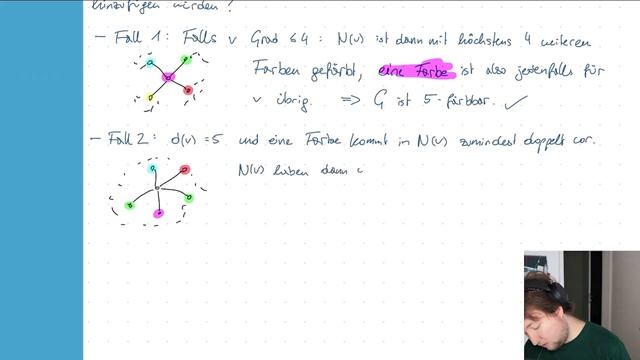 hinzufügen würden?
- Fall 1: Falls v Grad ≤ 4 : N(v) ist dann mit höchstens 4 weiteren
Farben gefärbt, eine Farbe ist also jedenfalls für
v übrig. ⟹ G ist 5-färbbar. ✓
- Fall 2: d(v) = 5 und eine Farbe kommt in N(v) zumindest doppelt vor.
N(v) haben dann